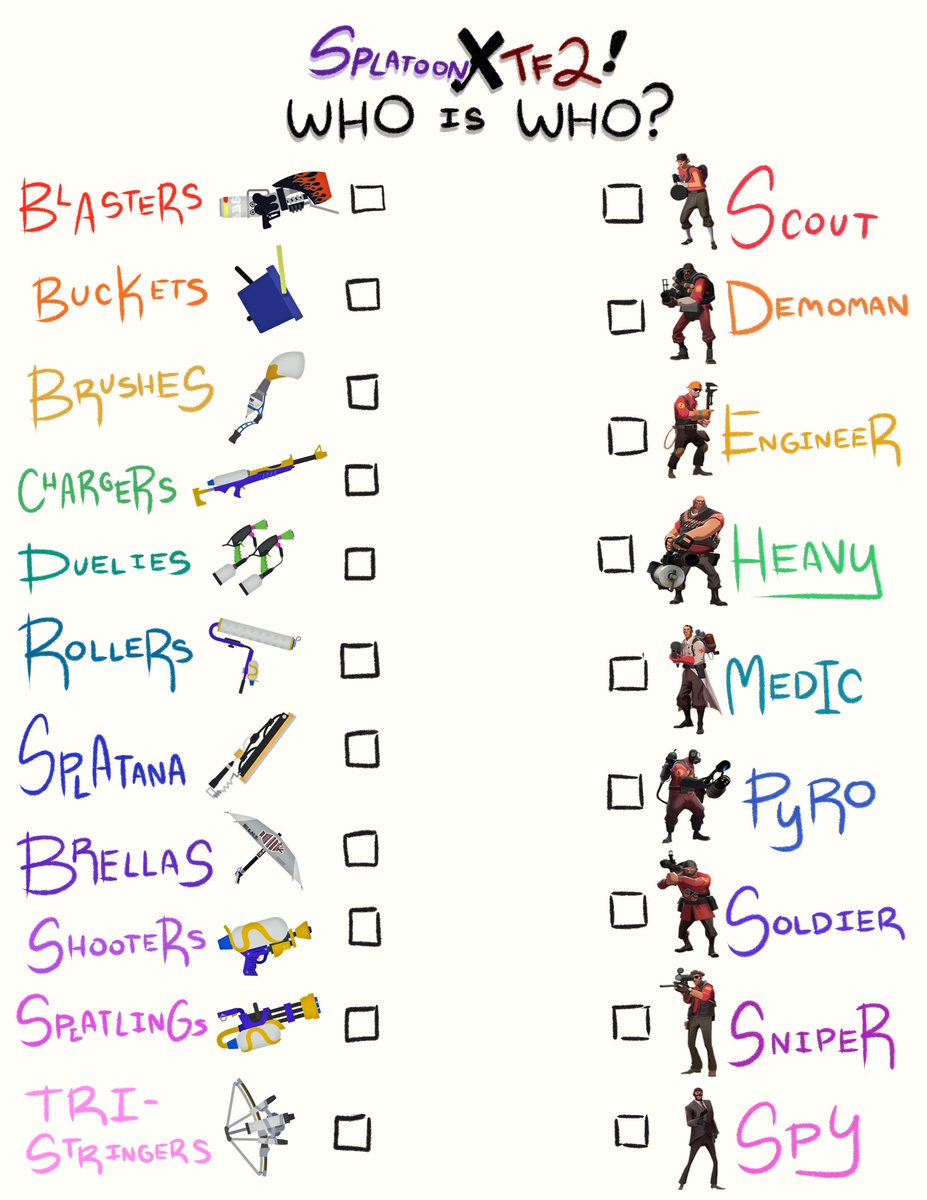 SPLATOON X TF2!
WHO IS WHO?
BLASTERS
BUCKETS
BRUSHES
CHARGERS
DUELIES
ROLLERS
SPLATANA
BRELLAS
SHOOTERS
SPLATLINGS
TRI-
STRINGERS
SCOUT
DEMOMAN
ENGINEER
HEAVY
MEDIC
PYRO
SOLDIER
SNIPER
SPY